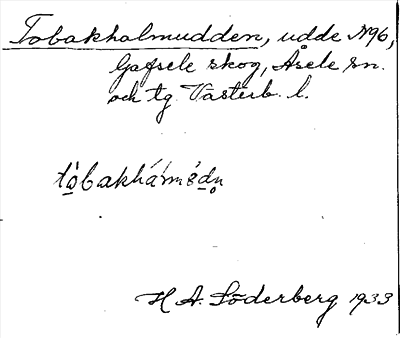 Tobakholmudden, udde N96,
Gafsele skog, Åsele sn.
och tg. Västerb. l.
H A. Söderberg 1933